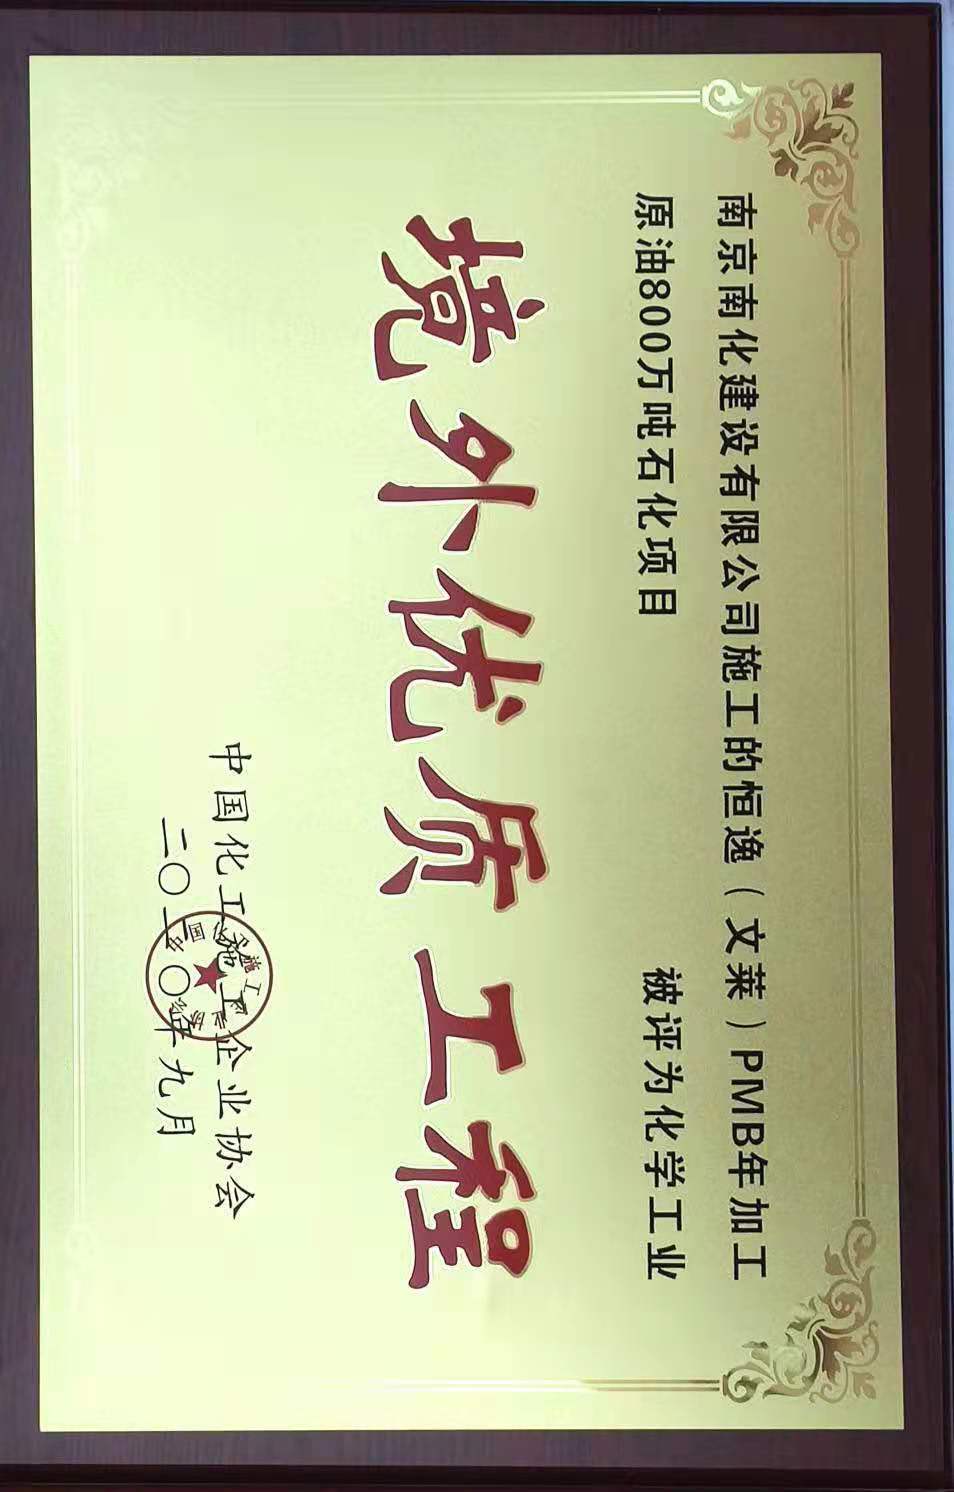 南京南化建设有限公司施工的恒逸（文莱）PMB年加工
原油800万吨石化项目 被评为化学工业
境外优质工程
中国化工施工企业协会
二〇二〇年九月